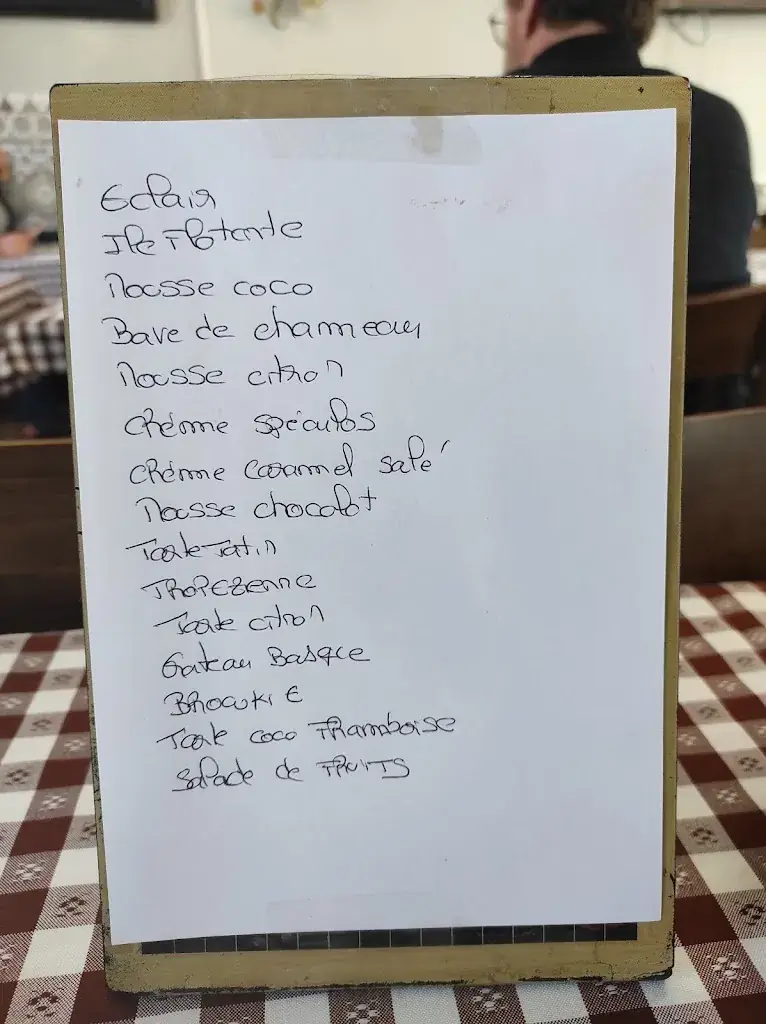 Eclair
Ile Flotante
Mousse coco
Bave de chammeau
Mousse citron
Crème spéculos
Crème caramel salé
Mousse chocolat
Tarte Tatin
TROPEZIENNE
Tarte citron
Gateau Basque
BROWKIE
Tarte coco Framboise
Salade de FRUITS